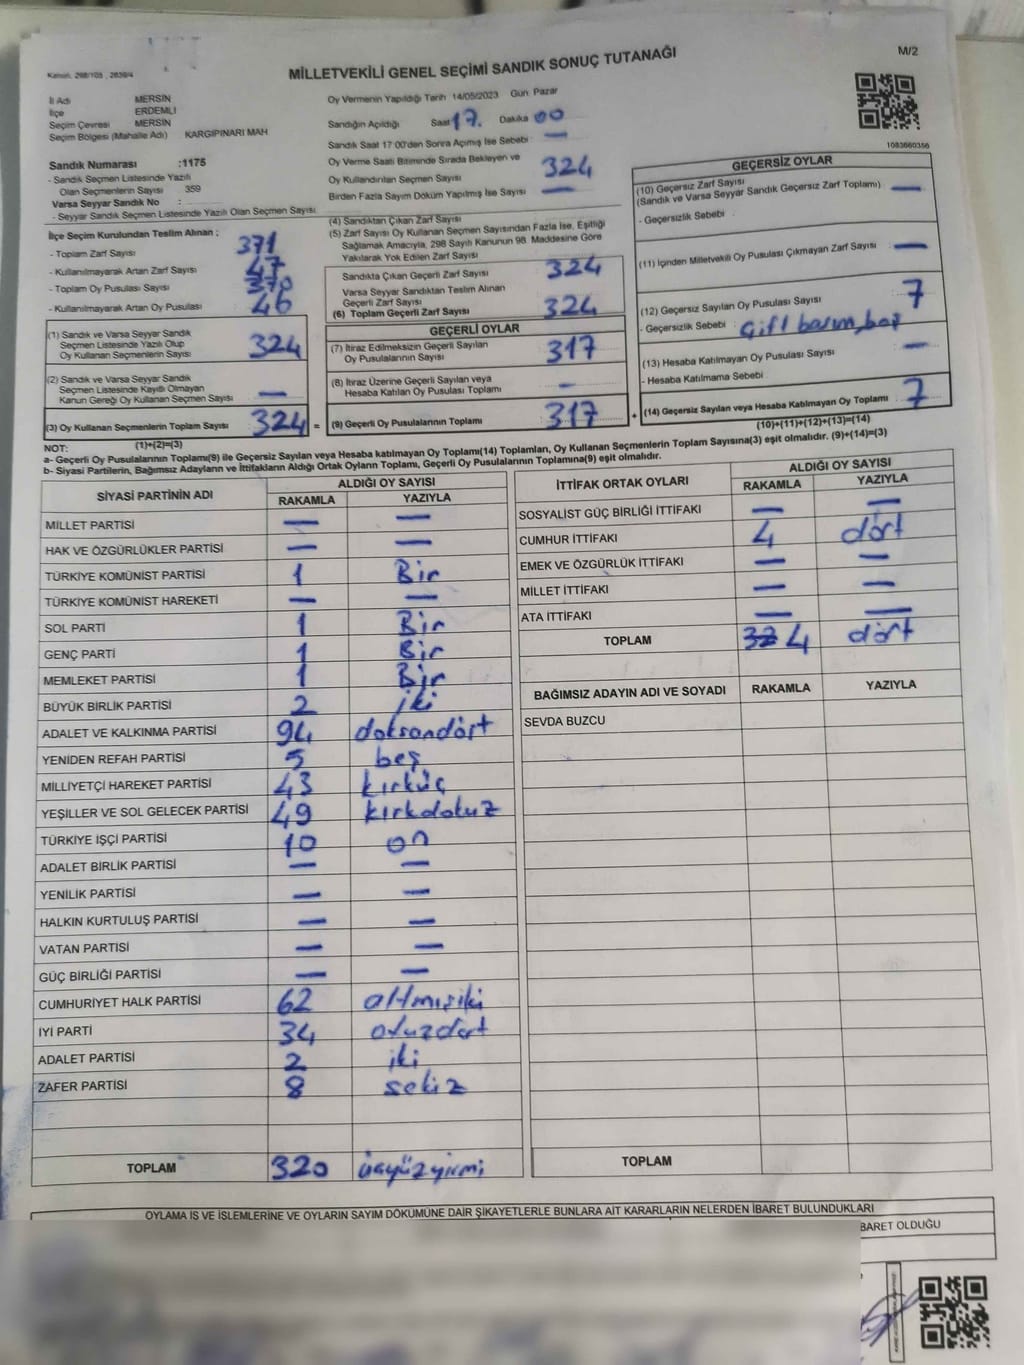 Kanun, 298/105 , 2839/4
MİLLETVEKİLİ GENEL SEÇİMİ SANDIK SONUÇ TUTANAĞI
M/2
İl Adı MERSİN
İlçe ERDEMLİ
Seçim Çevresi MERSİN
Seçim Bölgesi (Mahalle Adı) KARGIPINARI MAH
Sandık Numarası :1175
- Sandık Seçmen Listesinde Yazılı
Olan Seçmenlerin Sayısı 359
Varsa Seyyar Sandık No :
- Seyyar Sandık Seçmen Listesinde Yazılı Olan Seçmen Sayısı
Oy Vermenin Yapıldığı Tarih 14/05/2023 Gün: Pazar
Sandığın Açıldığı Saat 17. Dakika 00
Sandık Saat 17:00'den Sonra Açımış İse Sebebi : —
Oy Verme Saati Bitiminde Sırada Bekleyen ve
Oy Kullandırılan Seçmen Sayısı 324
Birden Fazla Sayım Döküm Yapılmış İse Sayısı —
1083660356
İlçe Seçim Kurulundan Teslim Alınan ;
- Toplam Zarf Sayısı 371
- Kullanılmayarak Artan Zarf Sayısı 47
- Toplam Oy Pusulası Sayısı 370
- Kullanılmayarak Artan Oy Pusulası : 46
(1) Sandık ve Varsa Seyyar Sandık
Seçmen Listesinde Yazılı Olup
Oy Kullanan Seçmenlerin Sayısı 324
(2) Sandık ve Varsa Seyyar Sandık
Seçmen Listesinde Kayıtlı Olmayan
Kanun Gereği Oy Kullanan Seçmen Sayısı —
(3) Oy Kullanan Seçmenlerin Toplam Sayısı 324 =
(1)+(2)=(3)
(4) Sandıktan Çıkan Zarf Sayısı
(5) Zarf Sayısı Oy Kullanan Seçmen Sayısından Fazla İse, Eşitliği
Sağlamak Amacıyla, 298 Sayılı Kanunun 98. Maddesine Göre
Yakılarak Yok Edilen Zarf Sayısı
Sandıkta Çıkan Geçerli Zarf Sayısı 324
Varsa Seyyar Sandıktan Teslim Alınan
Geçerli Zarf Sayısı
(6) Toplam Geçerli Zarf Sayısı 324
GEÇERLİ OYLAR
(7) İtiraz Edilmeksizin Geçerli Sayılan
Oy Pusulalarının Sayısı 317
(8) İtiraz Üzerine Geçerli Sayılan veya
Hesaba Katılan Oy Pusulası Toplamı —
(9) Geçerli Oy Pusulalarının Toplamı 317 +
GEÇERSİZ OYLAR
(10) Geçersiz Zarf Sayısı
(Sandık ve Varsa Seyyar Sandık Geçersiz Zarf Toplamı) —
- Geçersizlik Sebebi :
(11) İçinden Milletvekili Oy Pusulası Çıkmayan Zarf Sayısı —
(12) Geçersiz Sayılan Oy Pusulası Sayısı 7
- Geçersizlik Sebebi :
(13) Hesaba Katılmayan Oy Pusulası Sayısı —
- Hesaba Katılmama Sebebi :
(14) Geçersiz Sayılan veya Hesaba Katılmayan Oy Toplamı 7
(10)+(11)+(12)+(13)=(14)
NOT:
a- Geçerli Oy Pusulalarının Toplamı(9) ile Geçersiz Sayılan veya Hesaba katılmayan Oy Toplamı(14) Toplamları, Oy Kullanan Seçmenlerin Toplam Sayısına(3) eşit olmalıdır. (9)+(14)=(3)
b- Siyasi Partilerin, Bağımsız Adayların ve İttifakların Aldığı Ortak Oyların Toplamı, Geçerli Oy Pusulalarının Toplamına(9) eşit olmalıdır.
SİYASİ PARTİNİN ADI ALDIĞI OY SAYISI
RAKAMLA YAZIYLA
MİLLET PARTİSİ — —
HAK VE ÖZGÜRLÜKLER PARTİSİ — —
TÜRKİYE KOMÜNİST PARTİSİ 1 Bir
TÜRKİYE KOMÜNİST HAREKETİ — —
SOL PARTİ 1 Bir
GENÇ PARTİ 1 Bir
MEMLEKET PARTİSİ 1 Bir
BÜYÜK BİRLİK PARTİSİ 2 iki
ADALET VE KALKINMA PARTİSİ 94 doksandört
YENİDEN REFAH PARTİSİ 5 beş
MİLLİYETÇİ HAREKET PARTİSİ 43 kırküç
YEŞİLLER VE SOL GELECEK PARTİSİ 49 kırkdokuz
TÜRKİYE İŞÇİ PARTİSİ 10 on
ADALET BİRLİK PARTİSİ — —
YENİLİK PARTİSİ — —
HALKIN KURTULUŞ PARTİSİ — —
VATAN PARTİSİ — —
GÜÇ BİRLİĞİ PARTİSİ — —
CUMHURİYET HALK PARTİSİ 62 altmışiki
İYİ PARTİ 34 otuzdört
ADALET PARTİSİ 2 iki
ZAFER PARTİSİ 8 sekiz
TOPLAM 320 üçyüzyirmi
İTTİFAK ORTAK OYLARI ALDIĞI OY SAYISI
RAKAMLA YAZIYLA
SOSYALİST GÜÇ BİRLİĞİ İTTİFAKI — —
CUMHUR İTTİFAKI 4 dört
EMEK VE ÖZGÜRLÜK İTTİFAKI — —
MİLLET İTTİFAKI — —
ATA İTTİFAKI — —
TOPLAM 4 dört
BAĞIMSIZ ADAYIN ADI VE SOYADI RAKAMLA YAZIYLA
SEVDA BUZCU
TOPLAM
OYLAMA İŞ VE İŞLEMLERİNE VE OYLARIN SAYIM DÖKÜMÜNE DAİR ŞİKAYETLERLE BUNLARA AİT KARARLARIN NELERDEN İBARET BULUNDUKLARI
BARET OLDUĞU